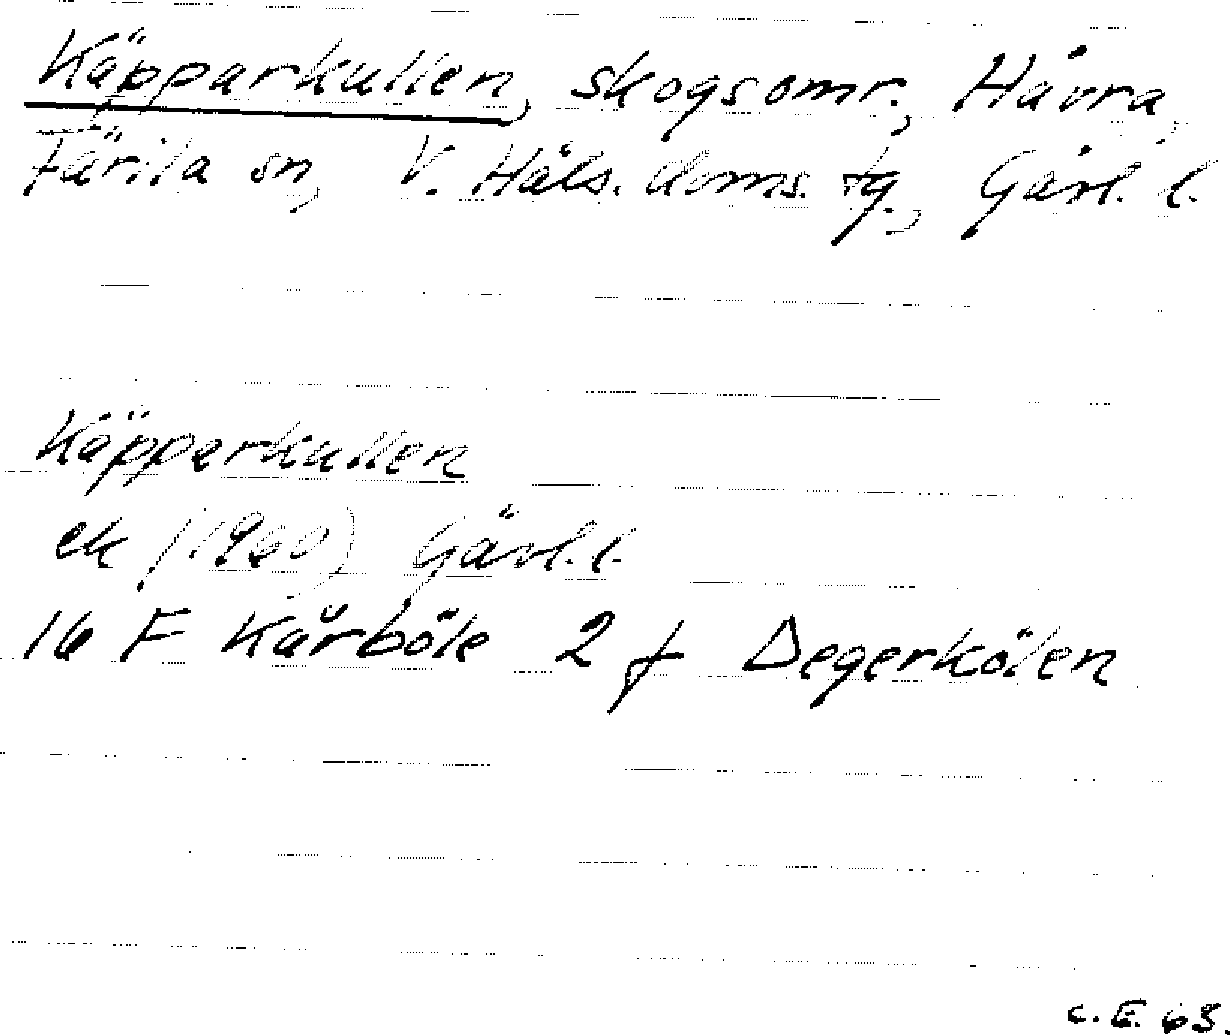 Käpparkullen, skogsomr., Håvra,
Färila sn, V. Häls. doms. tg., Gävl. l.
Käpparkullen
ek (1960) Gävl. l.
16 F Kårböle 2 f Degerkölen
C. E. 63.